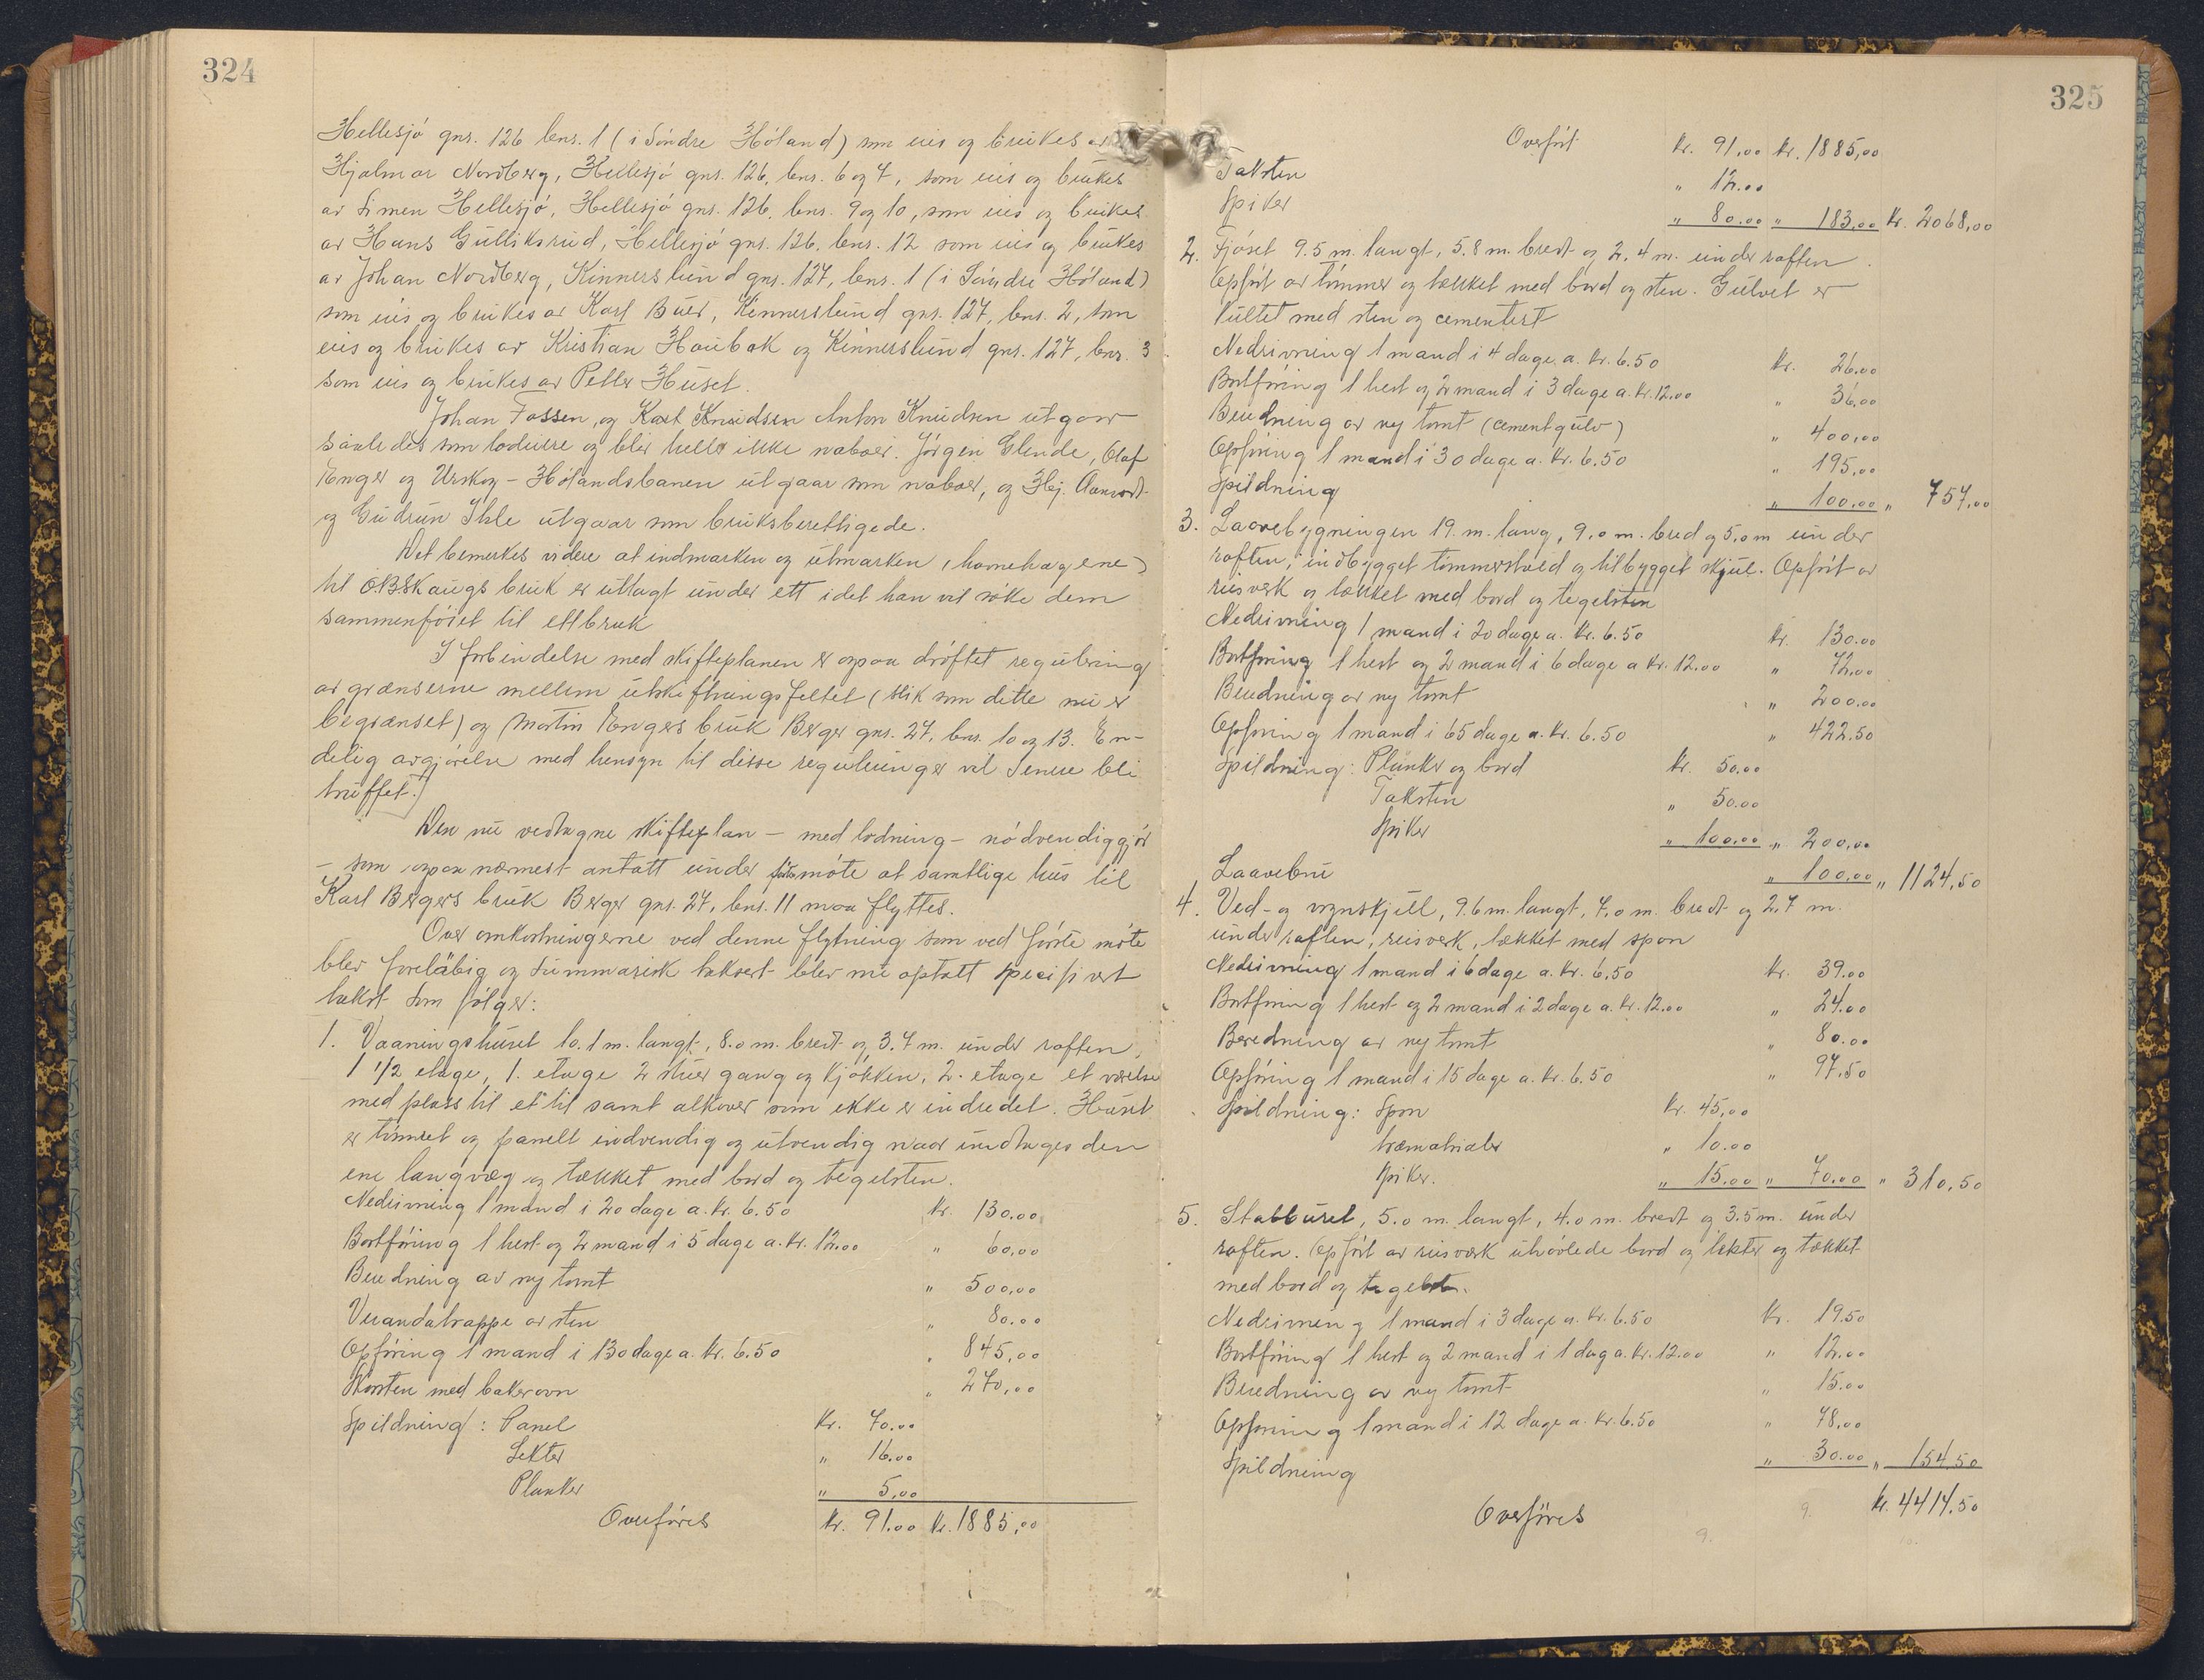 324
Hellesjø gnr. 126 bnr. 1 (i Søndre Høland) som eies og brukes av
Hjalmar Nordberg, Hellesjø gnr. 126, bnr. 6 og 7, som eies og brukes
av Simen Hellesjø, Hellesjø gnr. 126, bnr. 9 og 10, som eies og brukes
av Hans Gulliksrud, Hellesjø gnr. 126, bnr. 12 som eies og brukes
av Johan Nordberg, Kinnerslund gnr. 127, bnr. 1 (i Søndre Høland)
som eies og brukes av Karl Buer, Kinnerslund gnr. 127, bnr. 2, som
eies og brukes av Kristian Haubak og Kinnerslund gnr. 127, bnr. 3
som eies og brukes av Petter Huset.
Johan Fossen, og Karl Knudsen Anton Knudsen utgaar
saaledes som lodeiere og blir heller ikke naboer. Jørgen Glende, Olaf
Enger og Urskog-Hølandsbanen utgaar som naboer, og Hj. Aamodt
og Gudrun Ihle utgaar som bruksberettigede.
Det bemerkes videre at indmarken og utmarken (havnehagene)
til O.B. Skaugs bruk er uttagt under ett idet han vil søke dem
sammenføiet til ett bruk
I forbindelse med skifteplanen er ogsaa drøftet regulering
av grænserne mellem utskiftningsfeltet (slik som dette nu er
begrænset) og Martin Engers bruk Berger gnr. 27, bnr. 10 og 13. En-
delig avgjørelse med hensyn til disse reguleringer vil senere bli
truffet.
Den nu vedtagne skifteplan - med lodning - nødvendiggjør
- som ogsaa nærmest antatt under møte at samtlige hus til
Karl Bergers bruk Berger gnr. 27, bnr. 11 maa flyttes.
Over omkostningerne ved denne flytning som ved første møte
blev foreløbig og summarisk taksert blev nu optatt specifisert
takst som følger:
1. Vaaningshuset 10.1 m. langt, 8.0 m. bredt og 3.7 m. under raften,
1 1/2 etage, 1. etage 2 stuer gang og kjøkken, 2. etage et værelse
med plass til et til samt alkover som ikke er indredet. Huset
er tømret og panelt indvendig og utvendig naar undtages den
ene langvæg og tækket med bord og tegelsten.
Nedrivning 1 mand i 20 dage a. kr. 6.50 kr. 130.00
Bortføring 1 hest og 2 mand i 5 dage a. kr. 12.00 " 60.00
Beredning av ny tomt " 500,00
Verandatrappe av sten " 80.00
Opføring 1 mand i 130 dage a. kr. 6.50 " 845,00
Skorsten med bakerovn " 270,00
Spildning: Panel kr. 70.00
Lekter " 16.00
Planker " 5,00
Overføres kr. 91.00 kr. 1885,00
325
Overført kr. 91,00 kr. 1885,00
Taksten " 12.00
Spiker " 80.00 " 183,00 kr. 2068,00
2. Fjøset 9.5 m. langt, 5.8 m. bredt og 2.4 m. under raften.
Opført av tømmer og tækket med bord og sten. Gulvet er
kultet med sten og cementert
Nedrivning 1 mand i 4 dage a. kr. 6.50 kr. 26.00
Bortføring 1 hest og 2 mand i 3 dage a. kr. 12.00 " 36,00
Beredning av ny tomt (cementgulv) " 400,00
Opføring 1 mand i 30 dage a. kr. 6.50 " 195,00
Spildning " 100,00 " 757,00
3. Laavebygningen 19. m. lang, 9.0 m. bred og 5.0 m under
raften, indbygget tømmerstald og tilbygget skjul. Opført av
reisverk og tækket med bord og tegelsten
Nedrivning 1 mand i 20 dage a. kr. 6.50 kr. 130.00
Bortføring 1 hest og 2 mand i 6 dage a kr. 12.00 " 72,00
Beredning av ny tomt " 200.00
Opføring 1 mand i 65 dage a. kr. 6.50 " 422.50
Spildning: Planker og bord kr. 50.00
Taksten " 50.00
Spiker " 100.00 " 200,00
Laavebru " 100,00 " 1124,50
4. Ved- og vognskjul, 9.6 m. langt, 7.0 m. bredt og 2.7 m.
under raften, reisverk, tækket med spon
Nedrivning 1 mand i 6 dage a. kr. 6.50 kr. 39.00
Bortføring 1 hest og 2 mand i 2 dage a. kr. 12.00 " 24.00
Beredning av ny tomt " 80.00
Opføring 1 mand i 15 dage a. kr. 6.50 " 97.50
Spildning: Spon kr. 45,00
træmatrialer " 10.00
Spiker. " 15.00 " 70.00 " 310,50
5. Stabburet, 5.0 m. langt, 4.0 m. bredt og 3.5 m. under
raften. Opført av reisverk uhøvlede bord og lekter og tækket
med bord og tegelst.
Nedrivning 1 mand i 3 dage a. kr. 6.50 kr. 19.50
Bortføring 1 hest og 2 mand i 1 dag a. kr. 12.00 " 12.00
Beredning av ny tomt " 15.00
Opføring 1 mand i 12 dage a. kr. 6.50 " 78,00
Spildning " 30.00 " 154.50
Overføres kr. 4414.50